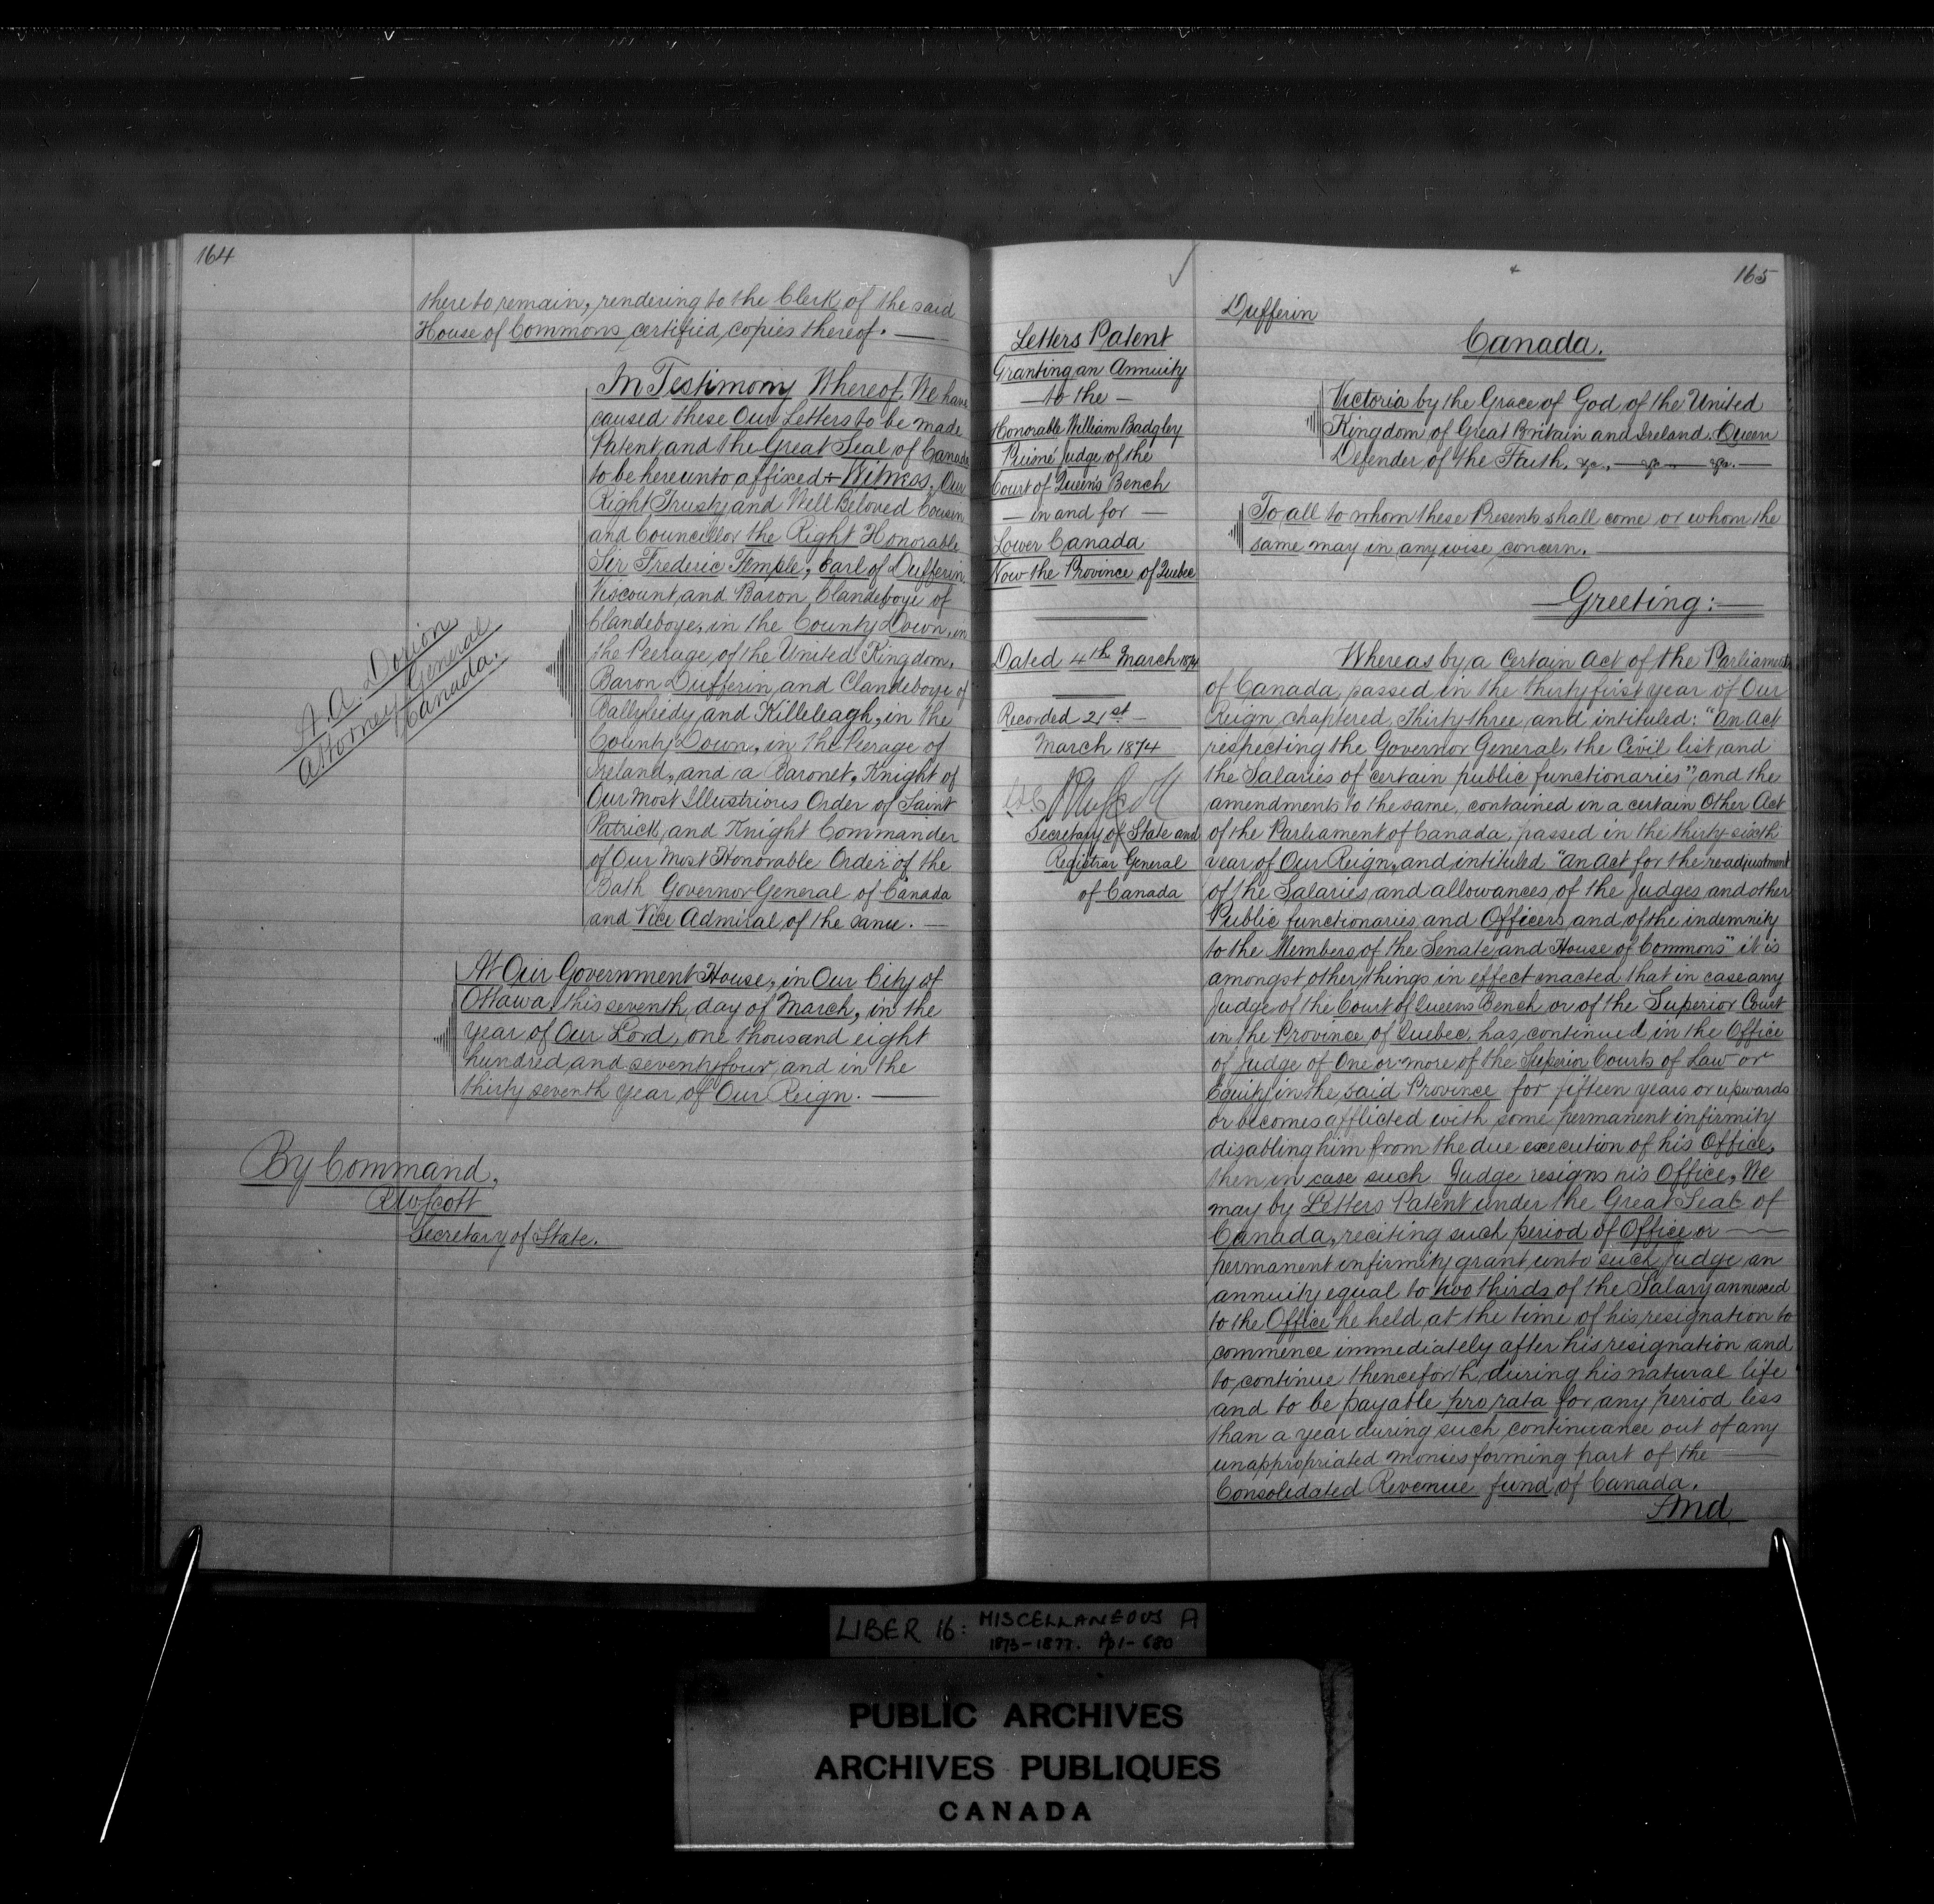 164
there to remain, rendering to the Clerk of the said
House of Commons certified copies thereof. —
In Testimony Whereof, We have
caused these Our Letters to be made
Patent and the Great Seal of Canada
to be hereunto affixed + Witness, Our
Right Trusty and Well Beloved Cousin
and Councillor the Right Honorable
Sir Frederic Temple, Earl of Dufferin,
Viscount and Baron Clandeboye of
Clandeboye, in the County Down, in
the Peerage of the United Kingdom,
Baron Dufferin and Clandeboye of
Ballyleidy and Killeleagh, in the
County Down, in the Peerage of
Ireland, and a Baronet, Knight of
Our Most Illustrious Order of Saint
Patrick and Knight Commander
of Our Most Honorable Order of the
Bath Governor General of Canada
and Vice Admiral of the same. —
A. A. Dorion
Attorney General
Canada.
At Our Government House, in Our City of
Ottawa this seventh day of March, in the
year of Our Lord, one thousand eight
hundred and seventy four and in the
thirty seventh year of Our Reign. —
By Command,
RW Scott
Secretary of State.
165
Letters Patent
Granting an Annuity
— to the —
Honorable William Badgley
Puisné Judge of the
Court of Queen's Bench
— in and for —
Lower Canada
Now the Province of Quebec
Dated 4th March 1874
Recorded 21st —
March 1874
RW Scott
Secretary of State and
Registrar General
of Canada
Dufferin
Canada.
Victoria by the Grace of God of the United
Kingdom of Great Britain and Ireland, Queen
Defender of the Faith, &c., — &c. — &c. —
To all to whom these Presents shall come or whom the
same may in anywise concern. —
— Greeting: —
Whereas by a Certain Act of the Parliament
of Canada, passed in the thirty first year of Our
Reign chaptered, thirty three, and intituled: "An Act
respecting the Governor General, the Civil list, and
the Salaries of certain public functionaries", and the
amendments to the same, contained in a certain Other Act
of the Parliament of Canada, passed in the thirty sixth
year of Our Reign, and intituled "An Act for the readjustment
of the Salaries and allowances of the Judges and other
Public functionaries and Officers and of the indemnity
to the Members of the Senate and House of Commons" it is
amongst other things in effect enacted that in case any
Judge of the Court of Queens Bench or of the Superior Court
in the Province of Quebec, has continued in the Office
of Judge of One or more of the Superior Courts of Law or
Equity in the said Province for fifteen years or upwards
or becomes afflicted with some permanent infirmity
disabling him from the due execution of his Office,
then in case such Judge resigns his Office, We
may by Letters Patent under the Great Seal of
Canada, reciting such period of Office or —
permanent infirmity grant unto such Judge an
annuity equal to two thirds of the Salary annexed
to the Office he held at the time of his resignation to
commence immediately after his resignation and
to continue thenceforth during his natural life
and to be payable pro rata for any period less
than a year during such continuance out of any
unappropriated monies forming part of the
Consolidated Revenue fund of Canada.
And
LIBER 16: MISCELLANEOUS A
1873-1877. Pp 1-680
PUBLIC ARCHIVES
ARCHIVES PUBLIQUES
CANADA